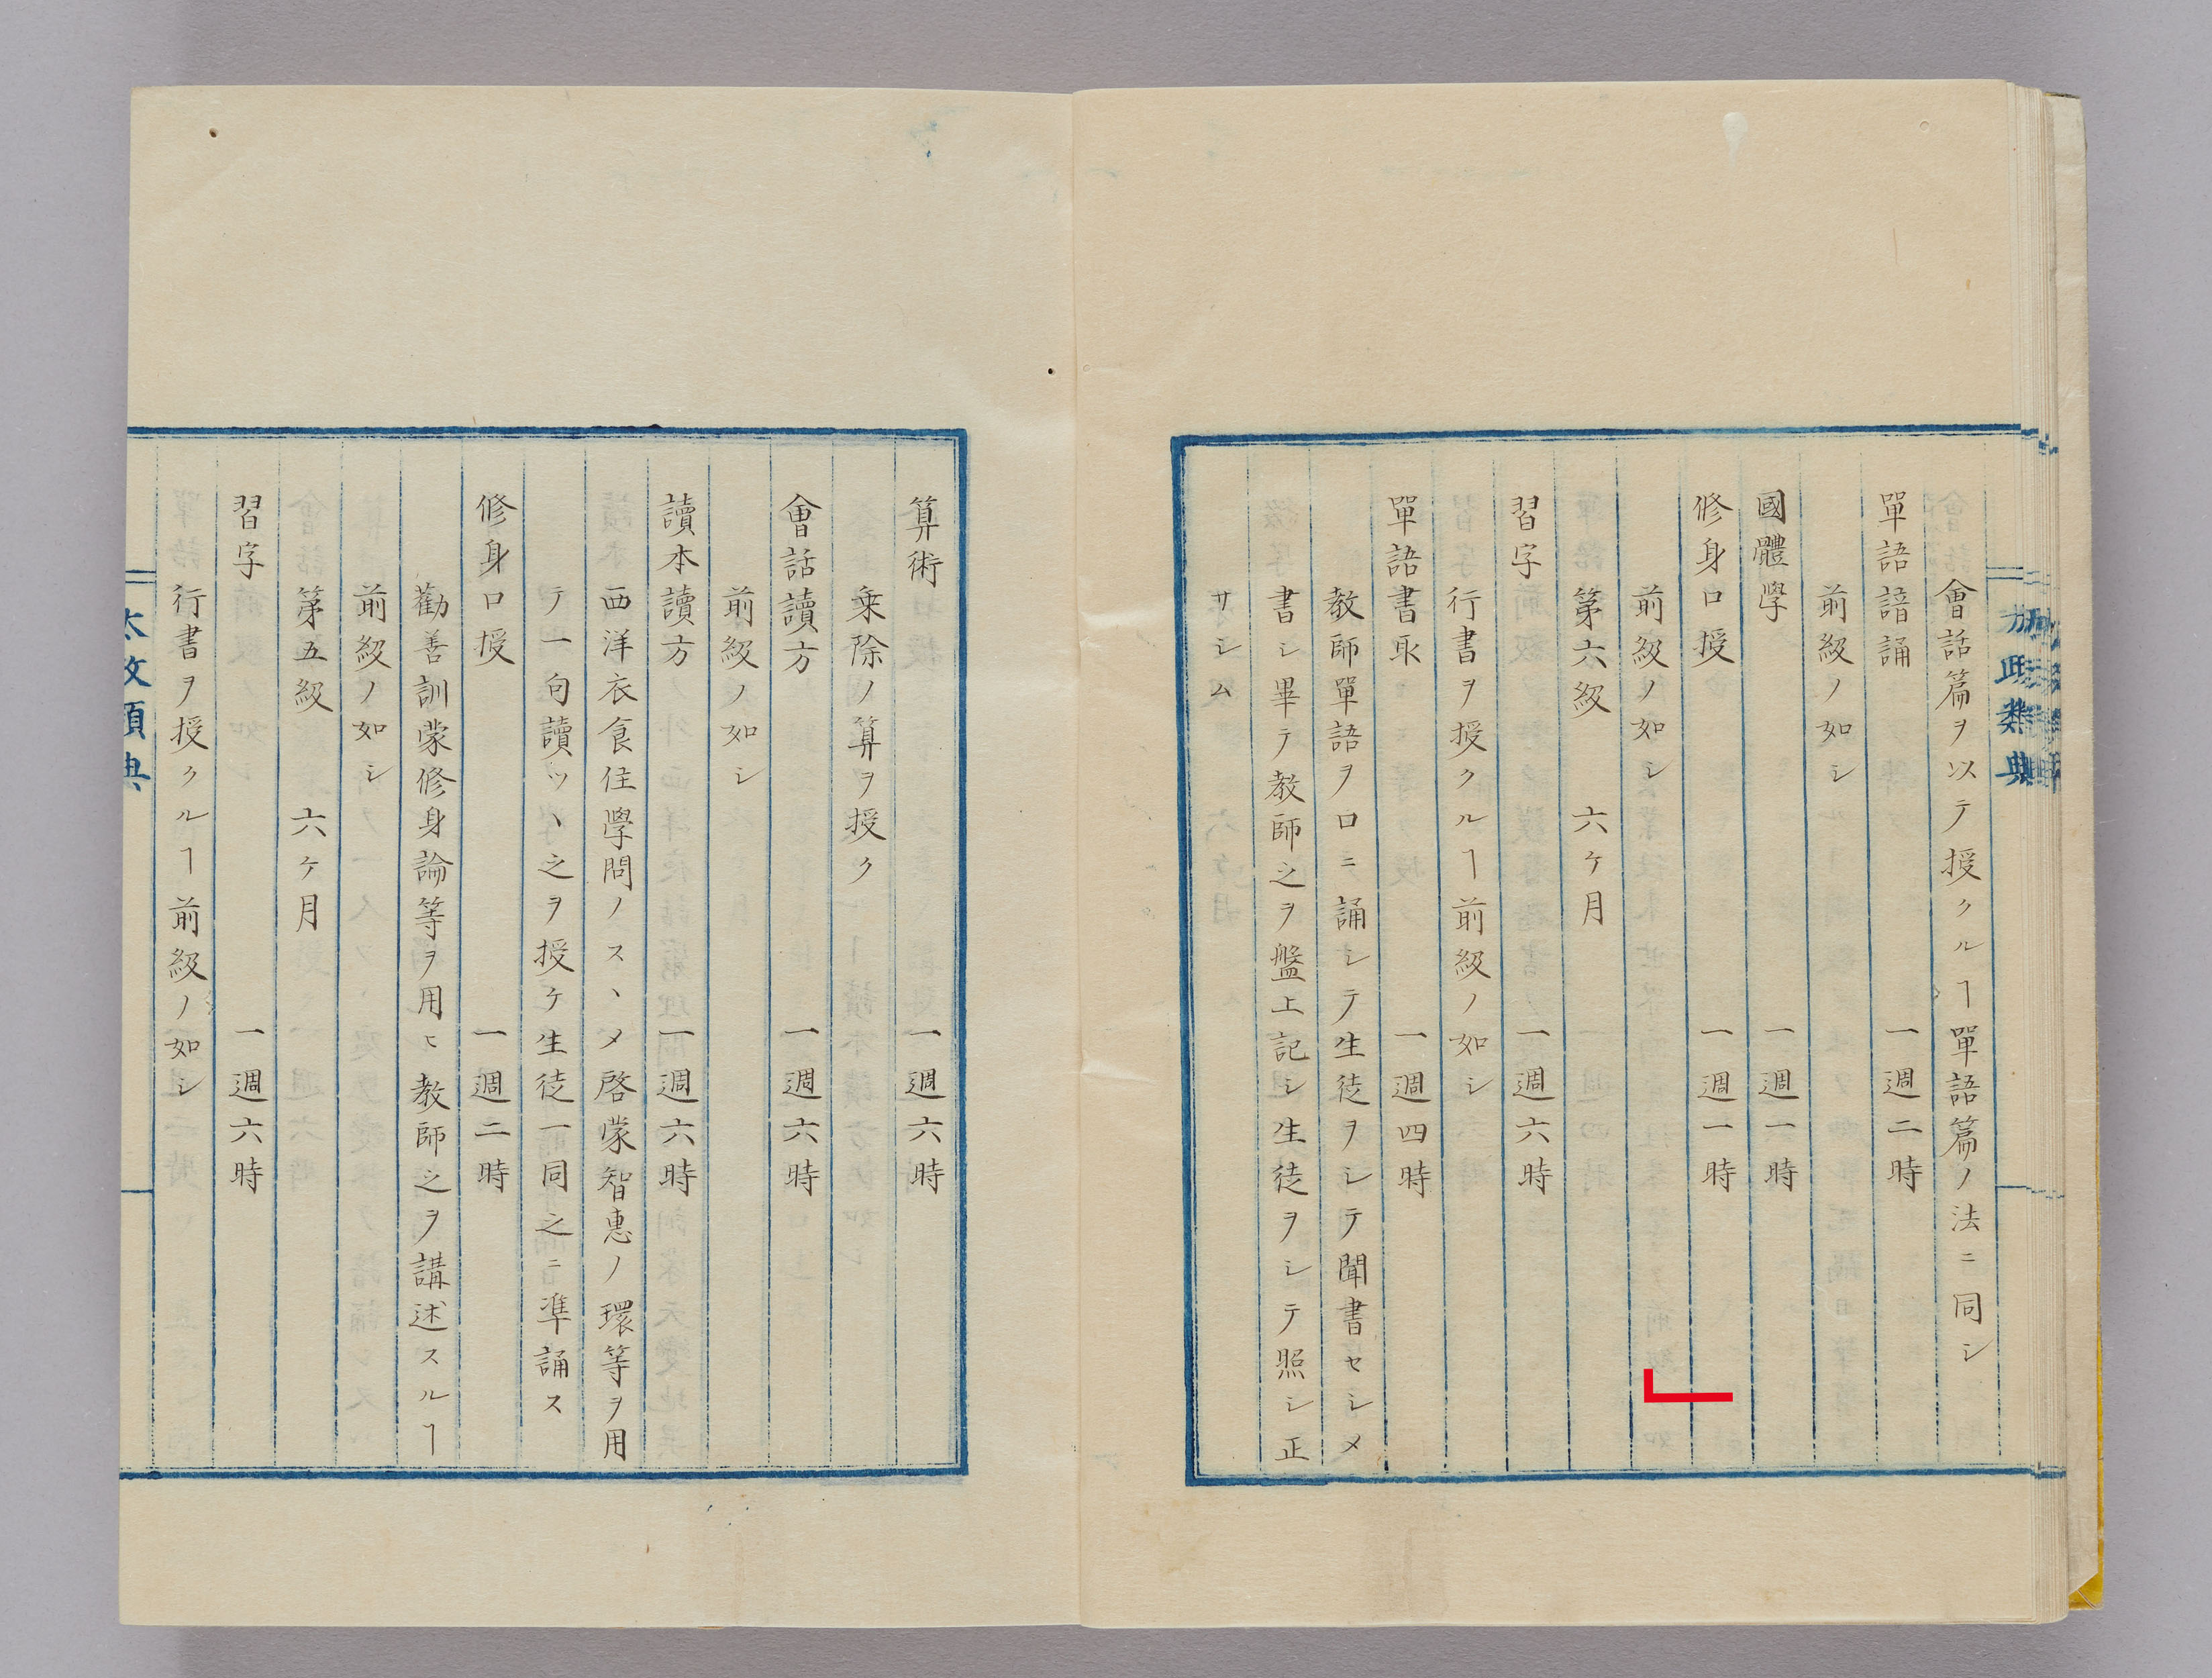 會話篇ヲ以テ授クルヿ單語篇ノ法ニ同シ
單語諳誦 一週二時
前級ノ如シ
國體學 一週一時
修身口授 一週一時
前級ノ如シ
第六級 六ケ月
習字 一週六時
行書ヲ授クルヿ前級ノ如シ
單語書取 一週四時
教師單語ヲ口ニ誦シテ生徒ヲシテ聞書セシメ
書シ畢テ教師之ヲ盤上記シ生徒ヲシテ照シ正
サシム
算術 一週六時
乗除ノ算ヲ授ク
會話讀方 一週六時
前級ノ如シ
讀本讀方 一週六時
西洋衣食住學問ノスヽメ啓蒙智惠ノ環等ヲ用
テ一句讀ツヽ之ヲ授ケ生徒一同之ニ準誦ス
修身口授 一週二時
勸善訓蒙修身論等ヲ用ヒ教師之ヲ講述スルヿ
前級ノ如シ
第五級 六ケ月
習字 一週六時
行書ヲ授クルヿ前級ノ如シ
太政類典